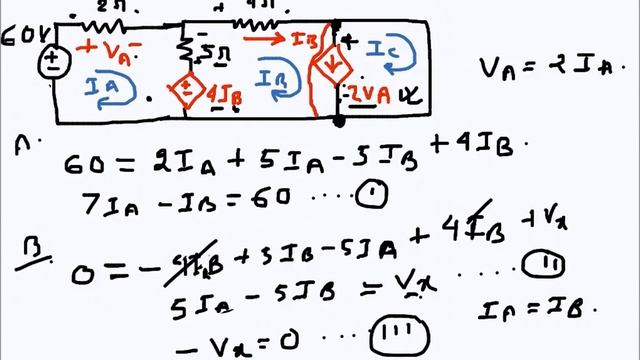 2Ω + 4Ω
60V
+ VA - - 5Ω IB + IC VA = 2IA.
IA 4IB IB - 2VA Vx
A. 60 = 2IA + 5IA - 5IB + 4IB.
7IA - IB = 60 ..... I
B 0 = - 4IB + 5IB - 5IA + 4IB + Vx
5IA - 5IB = Vx ..... II
IA = IB.
- Vx = 0 ... III